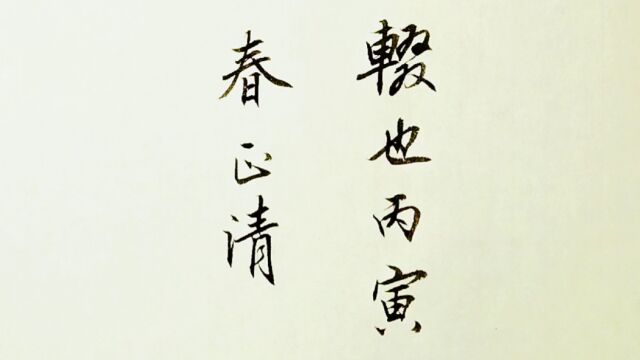 輟也丙寅
春正清